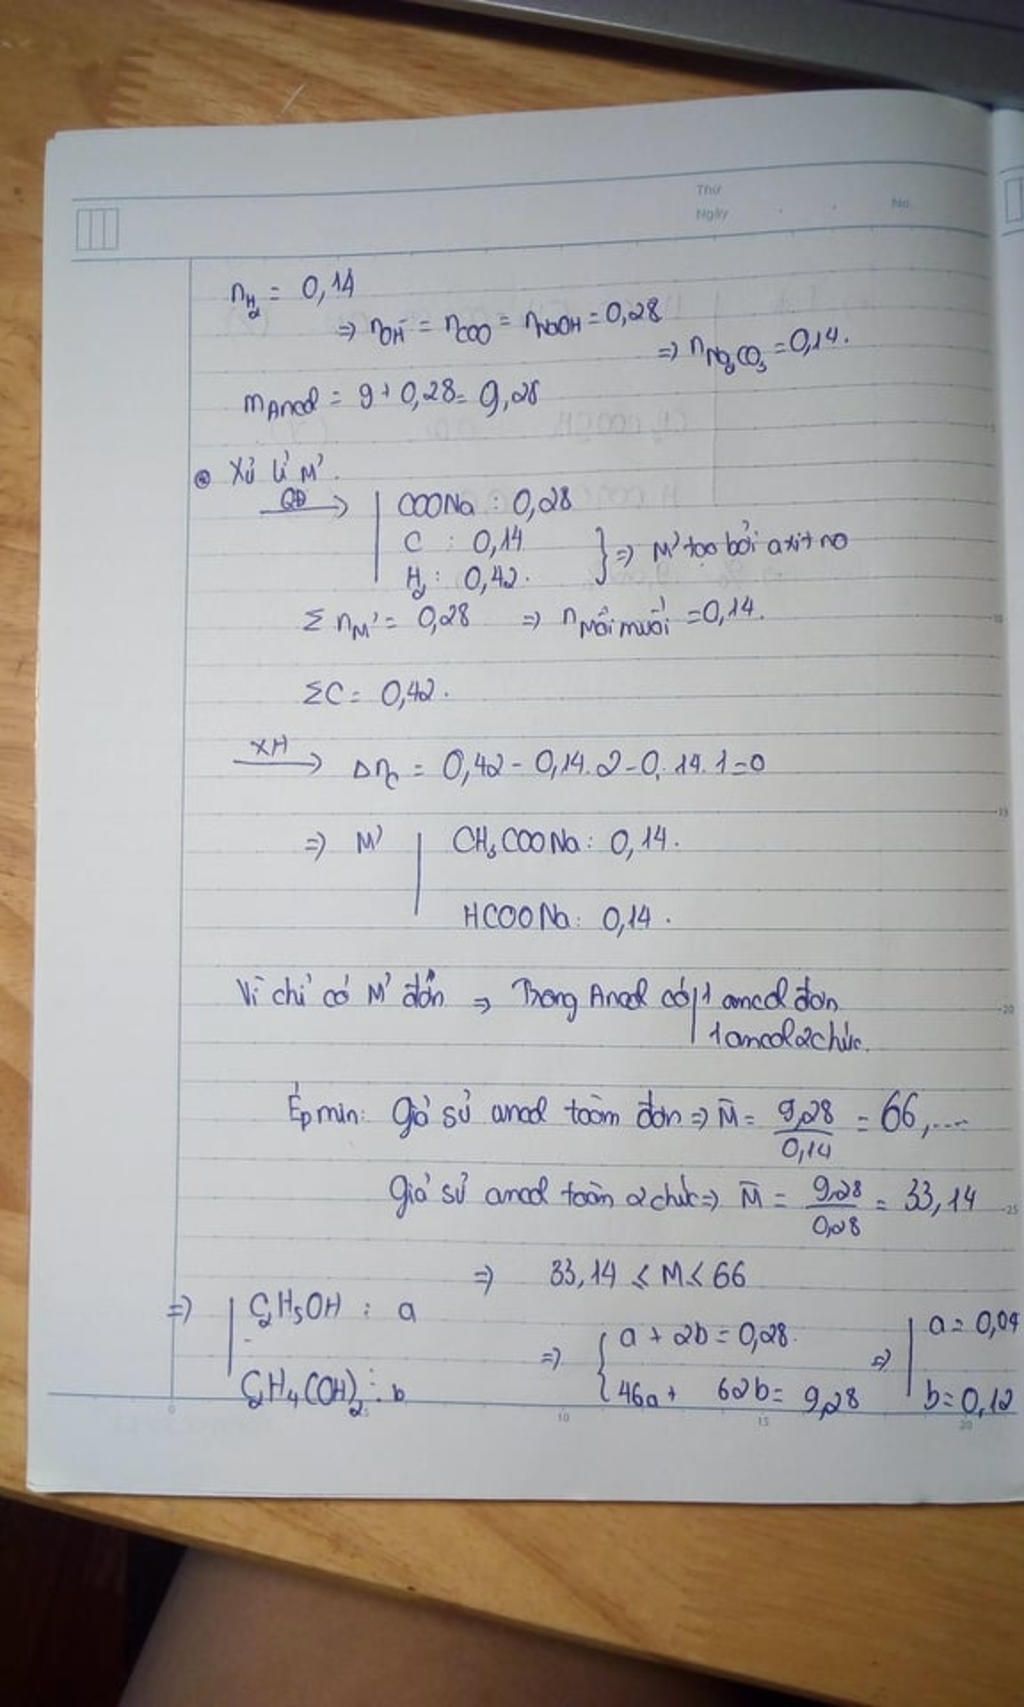 Thứ
Ngày . . No.
nH₂ = 0,14
⇒ nOH⁻ = nCOO = nNaOH = 0,28
⇒ nNa₂CO₃ = 0,14.
mAncol = 9 + 0,28 = 9,28
Xử lí M'.
QĐ → COONa : 0,28
C : 0,14
H₂ : 0,42.
} ⇒ M' tạo bởi axit no
Σ nM' = 0,28 ⇒ nMỗi muối = 0,14.
ΣC = 0,42.
XH → ΔnC = 0,42 - 0,14.2 - 0,14.1 = 0
⇒ M' | CH₃COONa : 0,14.
HCOONa : 0,14.
Vì chỉ có M' đơn ⇒ Trong Ancol có | 1 ancol đơn
1 ancol 2 chức.
Ép min: Giả sử ancol toàn đơn ⇒ M̄ = 9,28 / 0,14 = 66,...
Giả sử ancol toàn 2 chức ⇒ M̄ = 9,28 / 0,28 = 33,14
⇒ 33,14 < M < 66
⇒ | C₂H₅OH : a
C₂H₄(OH)₂ : b
⇒ { a + 2b = 0,28.
46a + 62b = 9,28
⇒ | a = 0,04
b = 0,12
5 10 15 20